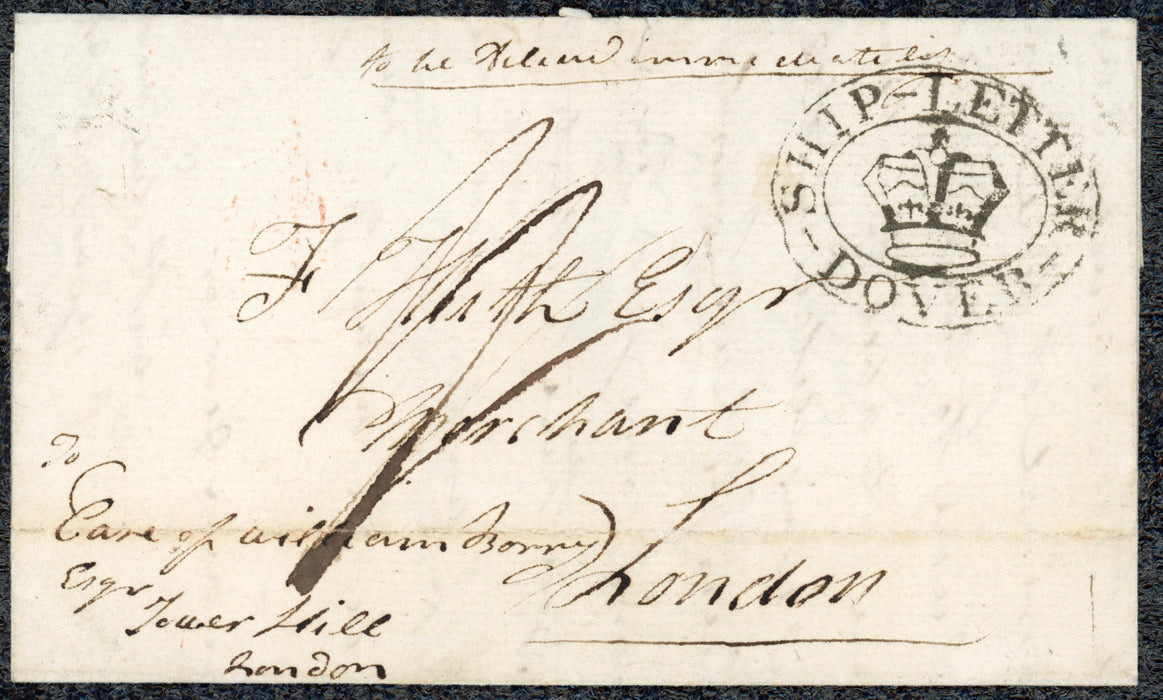 to be Delivd immediately
SHIP-LETTER
DOVER
F Huth Esqr
Merchant
London
To
Care of William Borry
Esqr
Tower Hill
London